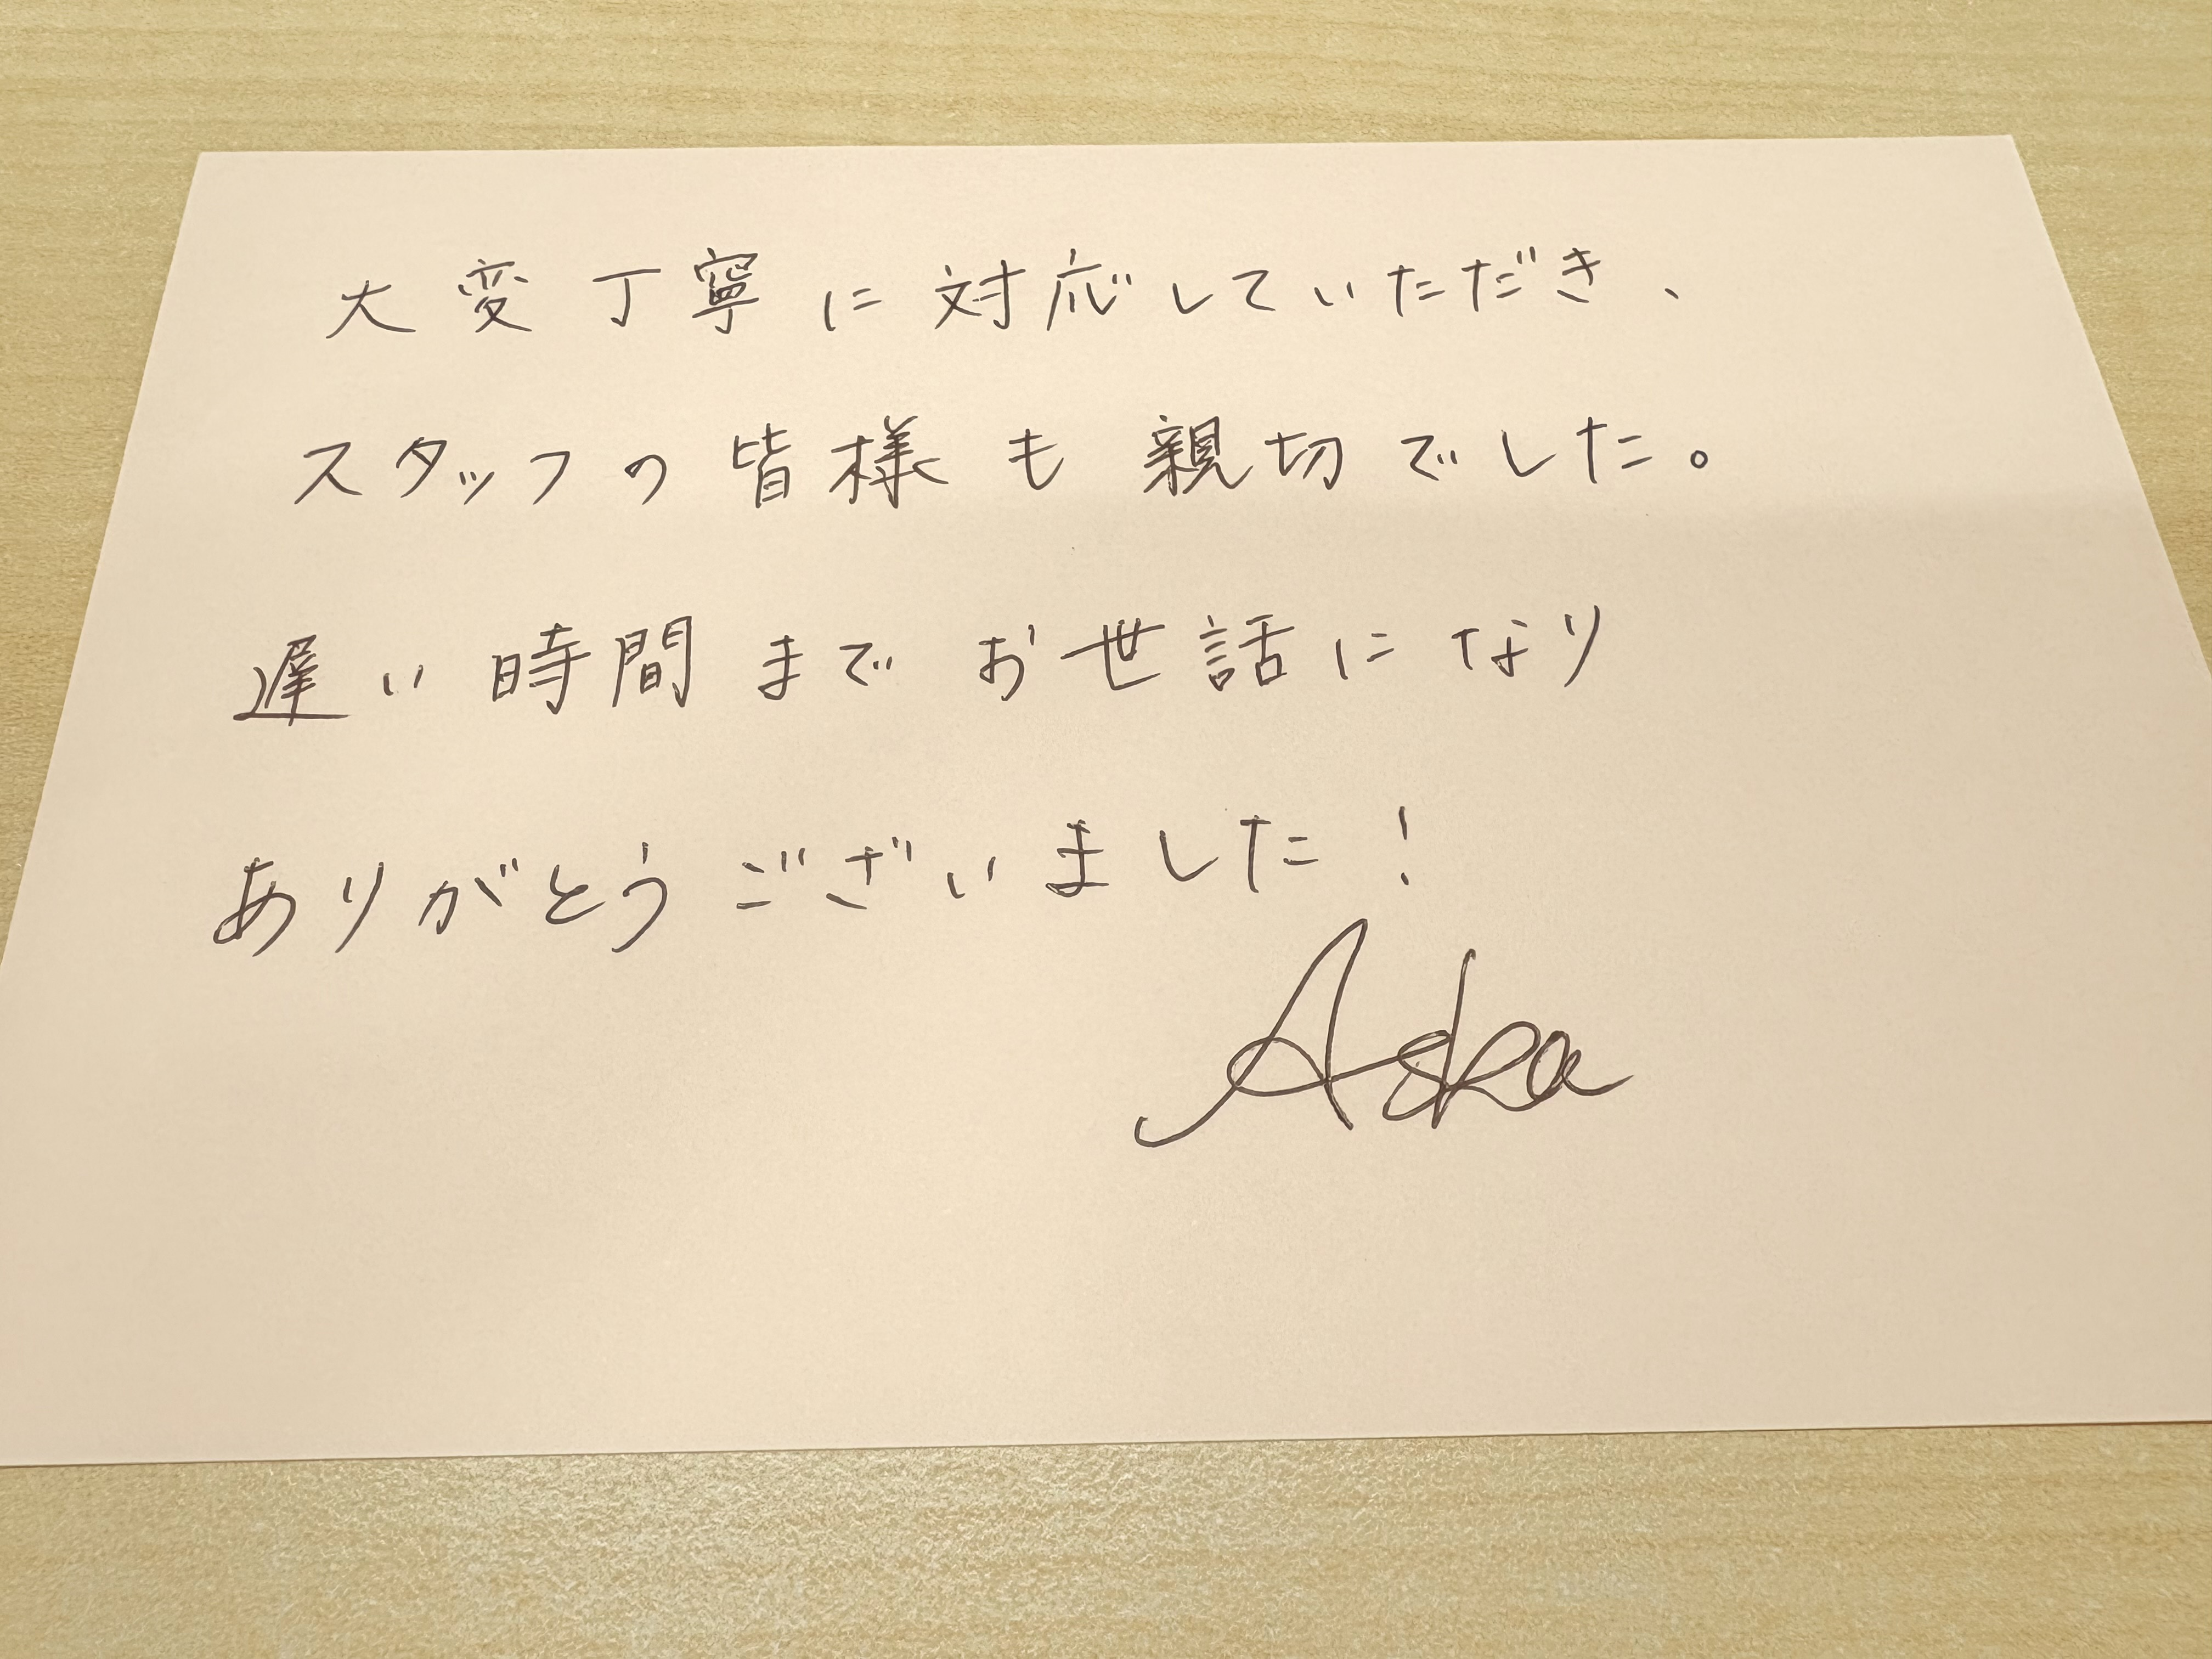 大変丁寧に対応していただき、
スタッフの皆様も親切でした。
遅い時間までお世話になり
ありがとうございました！
Aska